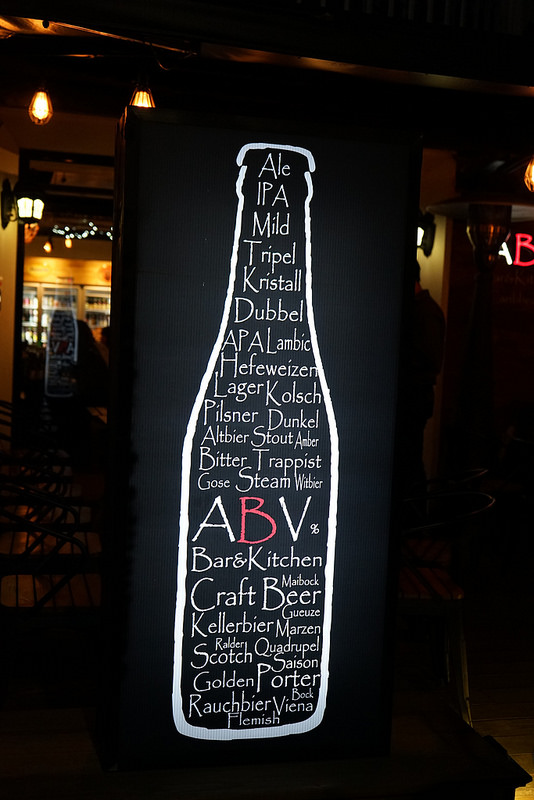 Ale
IPA
Mild
Tripel
Kristall
Dubbel
APA Lambic
Hefeweizen
Lager Kolsch
Pilsner Dunkel
Altbier Stout Amber
Bitter Trappist
Gose Steam Witbier
ABV %
Bar&Kitchen
Maibock
Craft Beer
Gueuze
Kellerbier Marzen
Ralder Quadrupel
Scotch Saison
Golden Porter
Bock
Rauchbier Viena
Flemish
AB